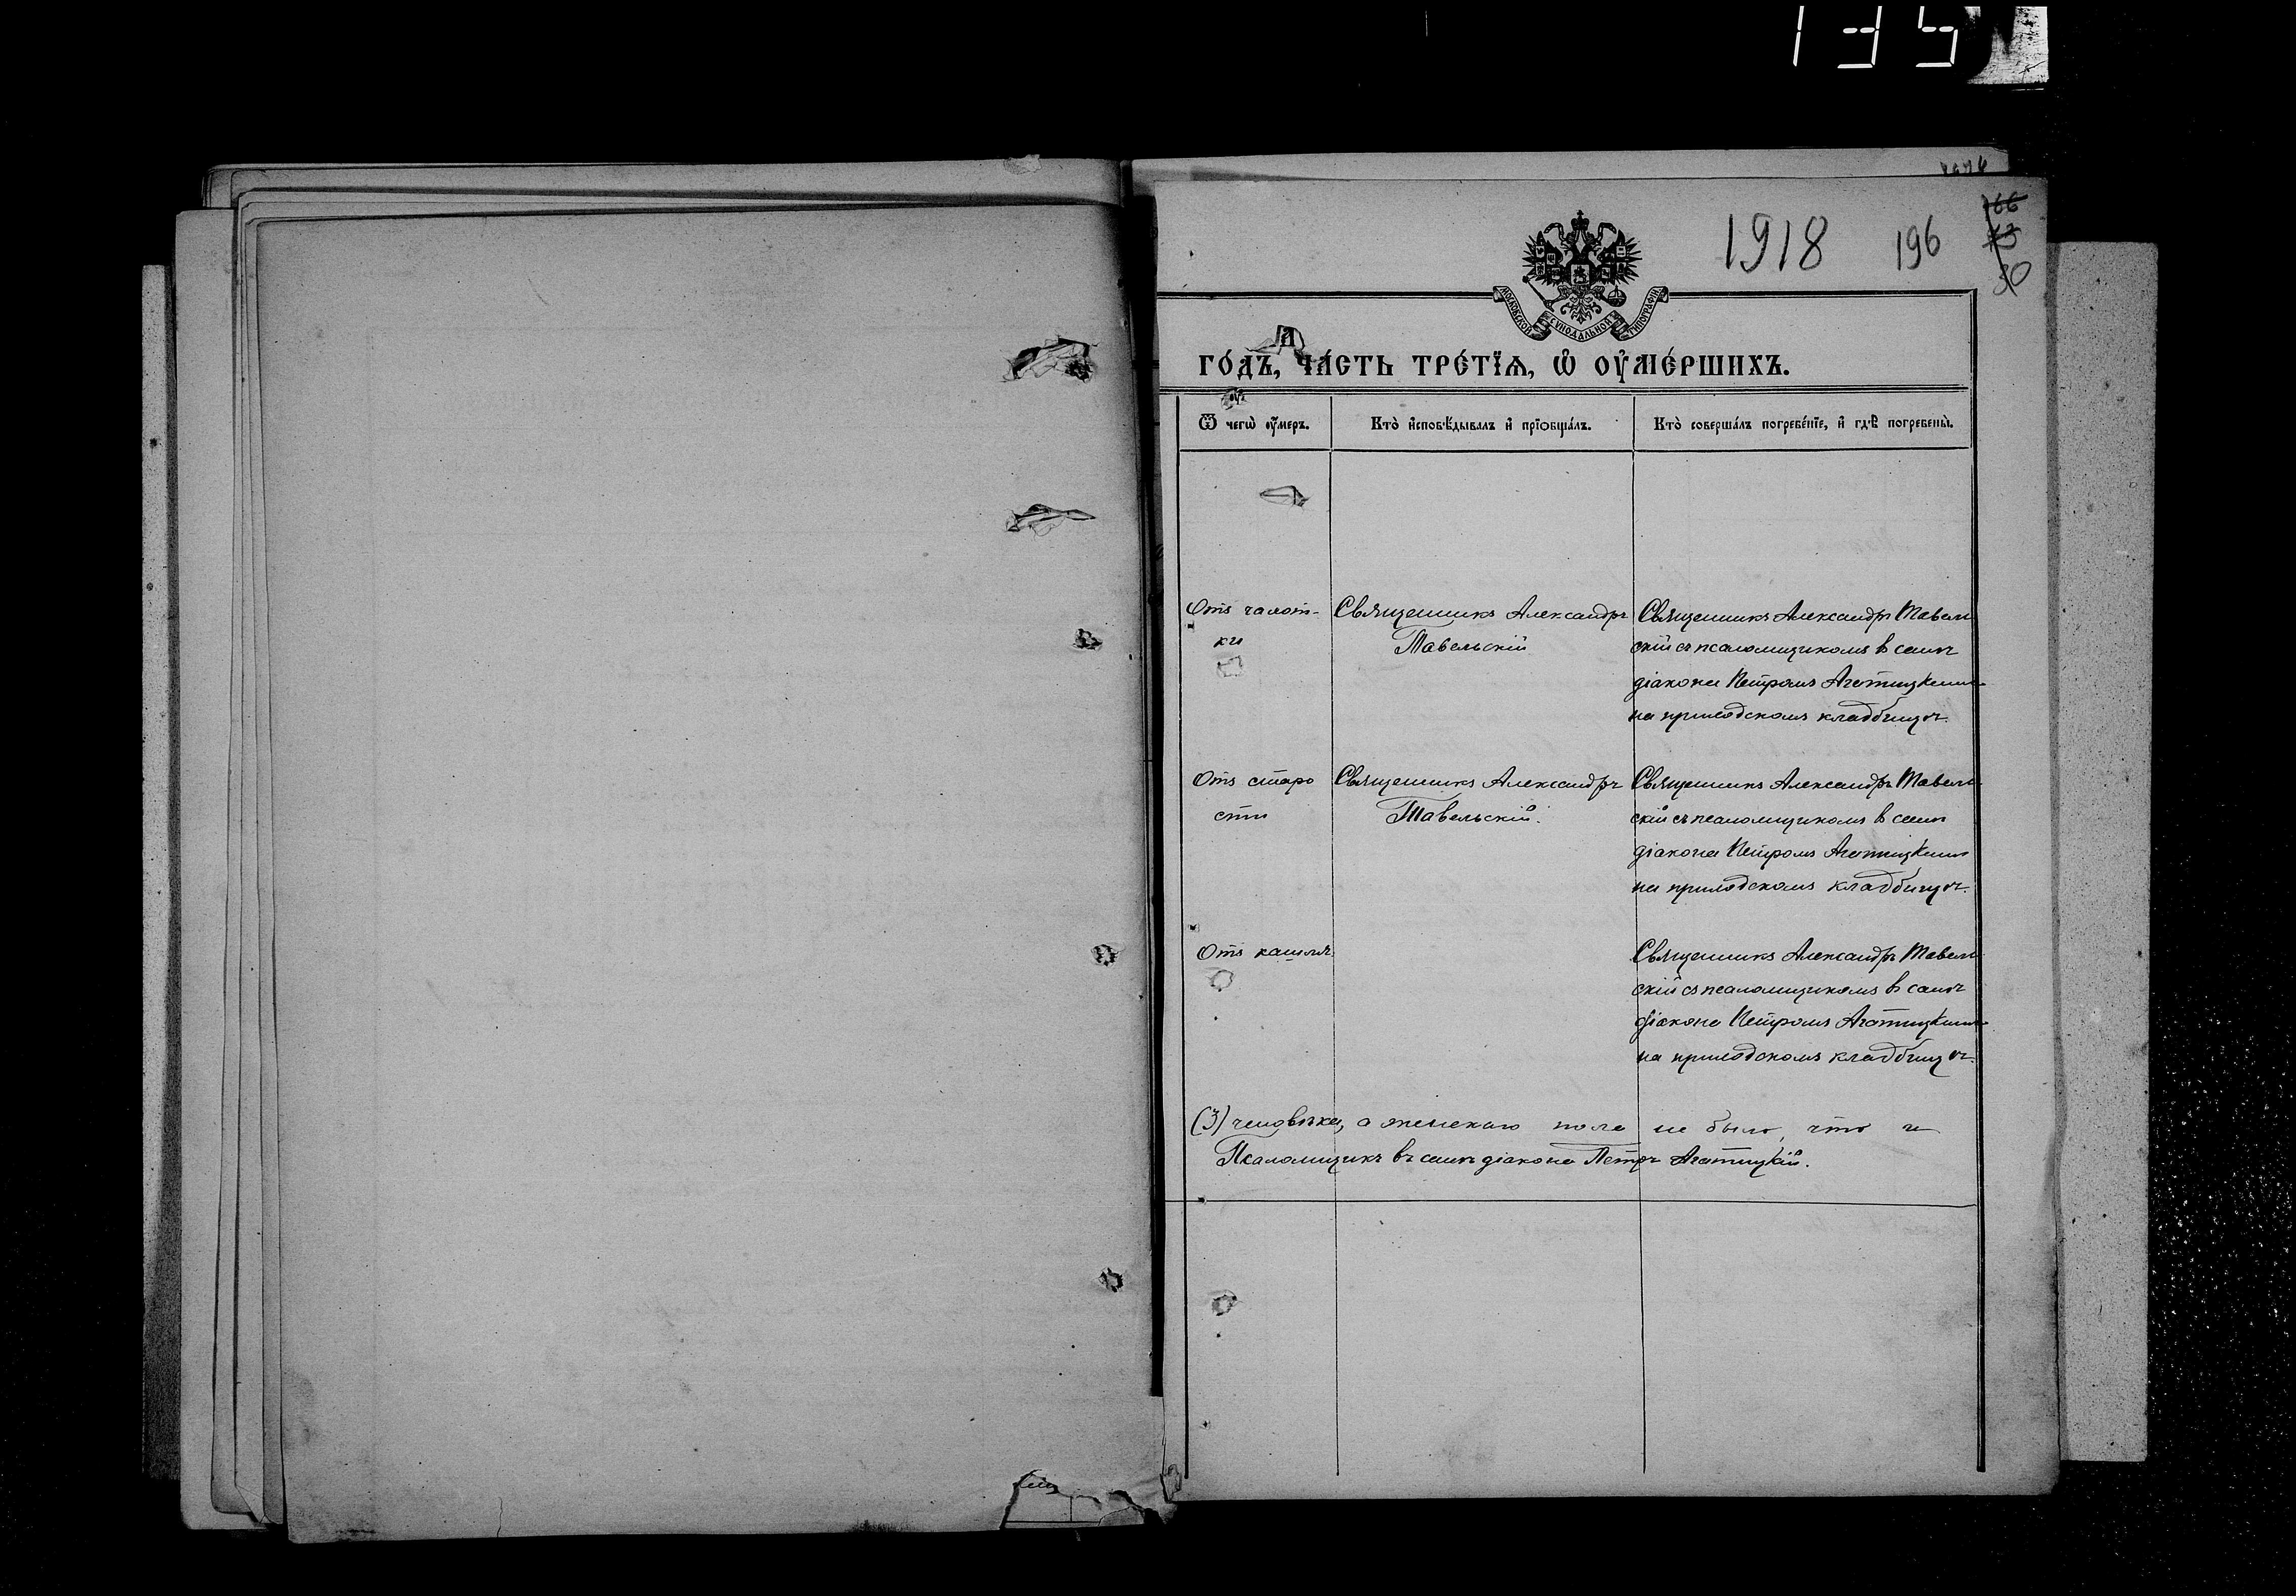 135
1918 196 166
43
50
МОСКОВСКОЙ СѴНОДАЛЬНОЙ ТИПОГРАФІИ
ГО́ДЪ, ЧА́СТЬ ТРЕ́ТЇѦ, Ѡ҆ ОУ҆МЕ́РШИХЪ.
Ѿ чегѡ̀ оу҆́меръ.
Кто̀ и҆сповѣ́дывалъ и҆ прїѻбща́лъ.
Кто̀ соверша́лъ погребе́нїе, и҆ гдѣ̀ погребены̀.
Отъ чахот-
ки
Священникъ Александръ
Тавельскій
Священникъ Александръ Тавель
скій съ псаломщикомъ в санѣ
діакона Петромъ Агатицкимъ
на приходскомъ кладбищѣ.
Отъ старо
сти
Священникъ Александръ
Тавельскій.
Священникъ Александръ Тавель
скій съ псаломщикомъ в санѣ
діакона Петромъ Агатицкимъ
на приходскомъ кладбищѣ.
Отъ кашля
Священникъ Александръ Тавель
скій съ псаломщикомъ в санѣ
діакона Петромъ Агатицкимъ
на приходскомъ кладбищѣ.
(3) человѣка, а женскаго пола не было, что и
Псаломщикъ въ санѣ діакона Петръ Агатицкій.